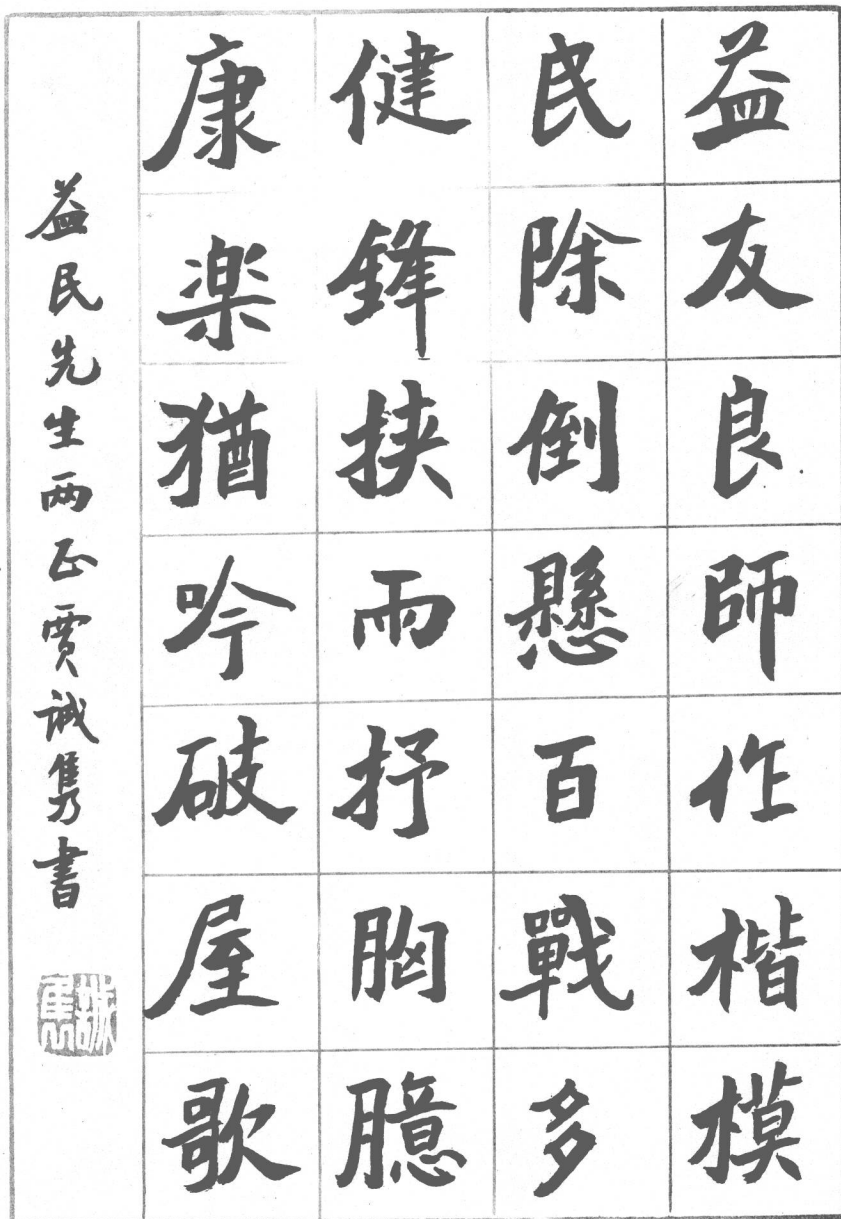 益友良師作楷模
民除倒懸百戰多
健鋒挟雨抒胸臆
康楽猶吟破屋歌
益民先生两正賈誠隽書
誠隽